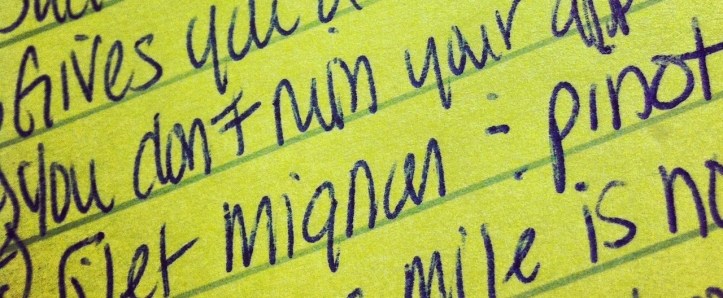 Gives you
you don't ruin your
filet mignon - pinot
mile is no